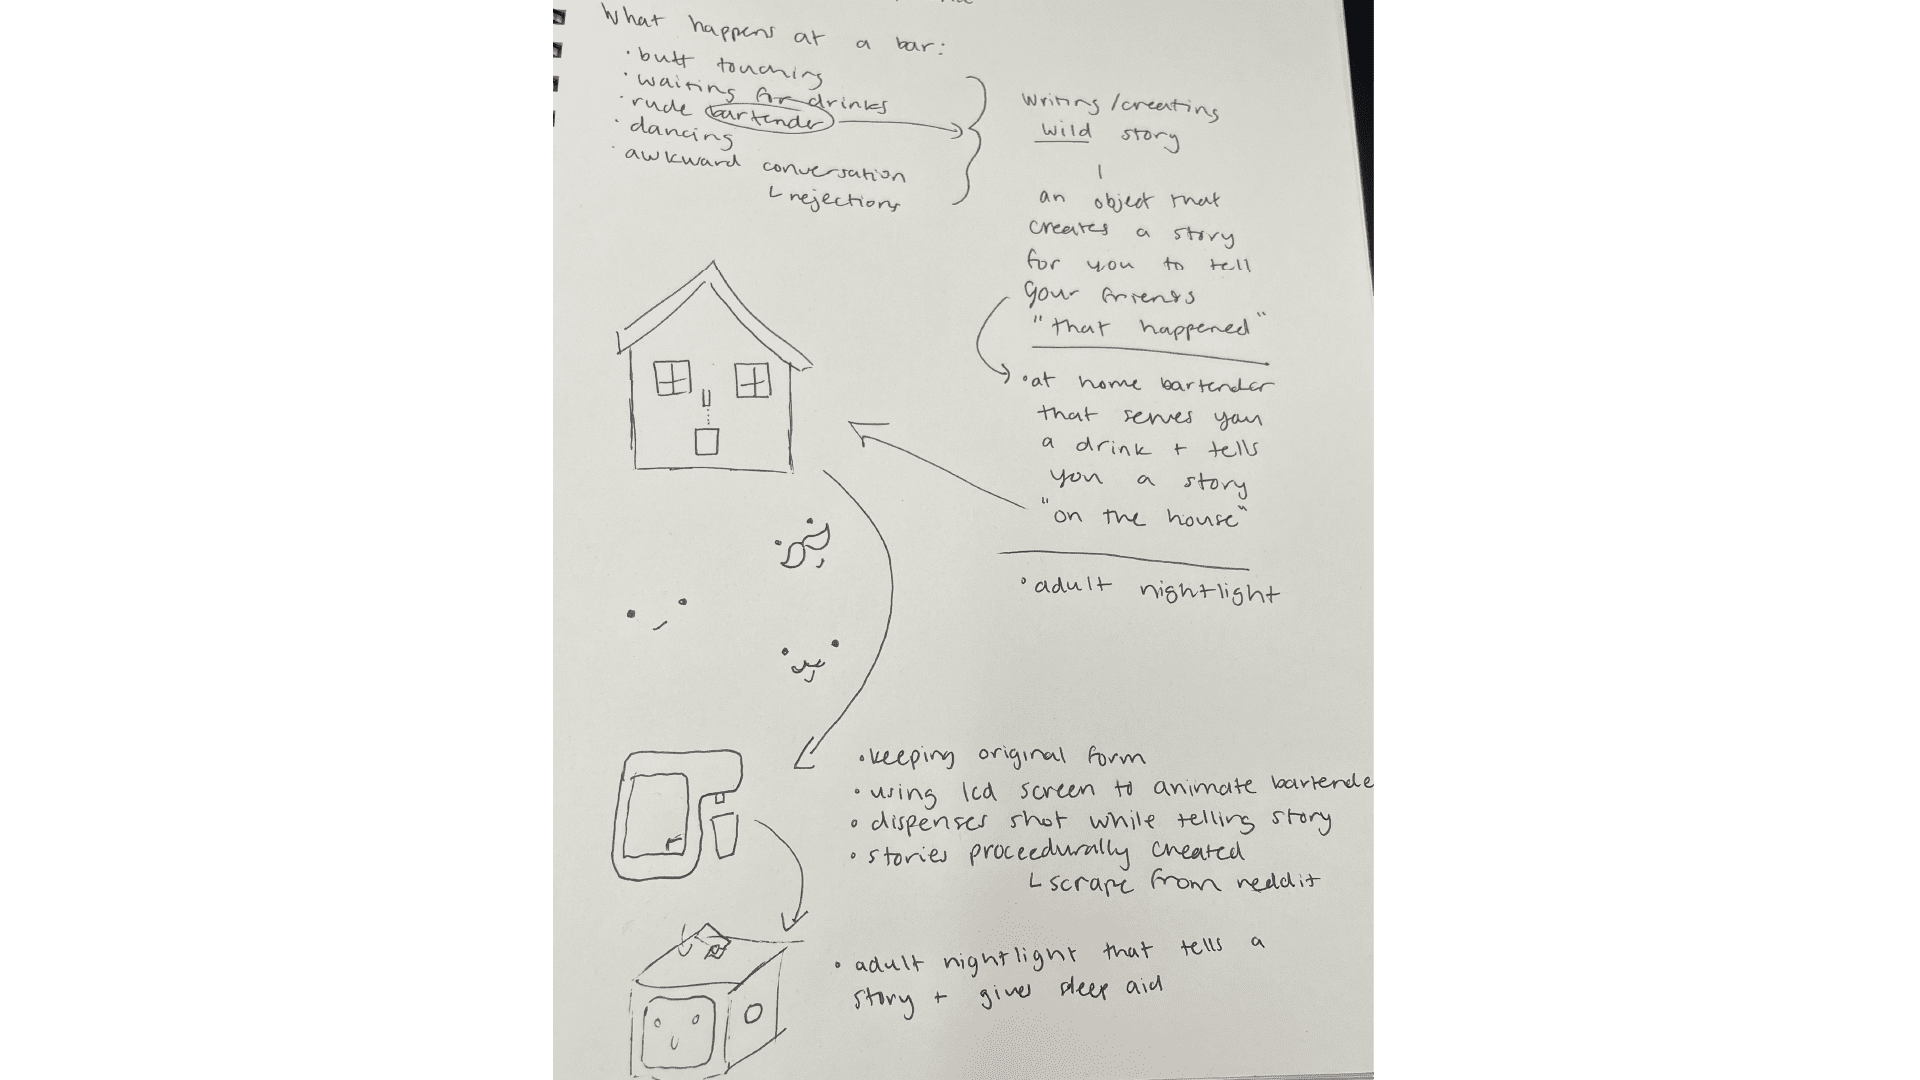 What happens at a bar:
· butt touching
· waiting for drinks
· rude bartender
· dancing
· awkward conversation
└ rejections
writing/creating
wild story
an object that
creates a story
for you to tell
your friends
"that happened"
· at home bartender
that serves you
a drink + tells
you a story
"on the house"
· adult nightlight
· keeping original form
· using lcd screen to animate bartende
· dispenses shot while telling story
· stories proceedurally created
└ scrape from reddit
· adult nightlight that tells a
story + gives sleep aid